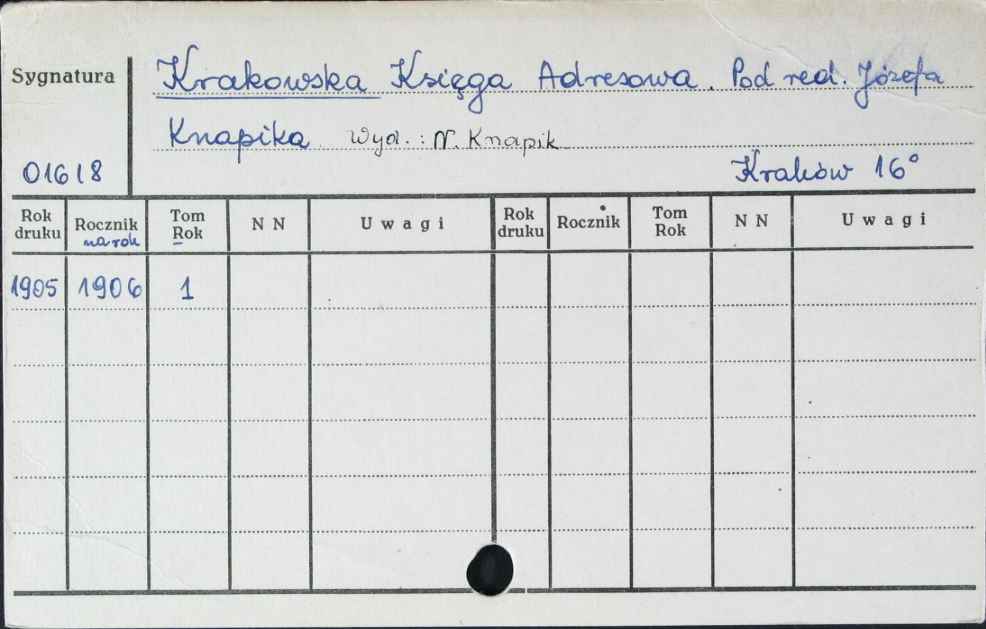 Sygnatura
Krakowska Księga Adresowa. Pod red. Józefa
Knapika Wyd.: N. Knapik
01618
Kraków 16°
Rok druku Rocznik na rok Tom Rok N N Uwagi Rok druku Rocznik Tom Rok N N Uwagi
1905 1906 1